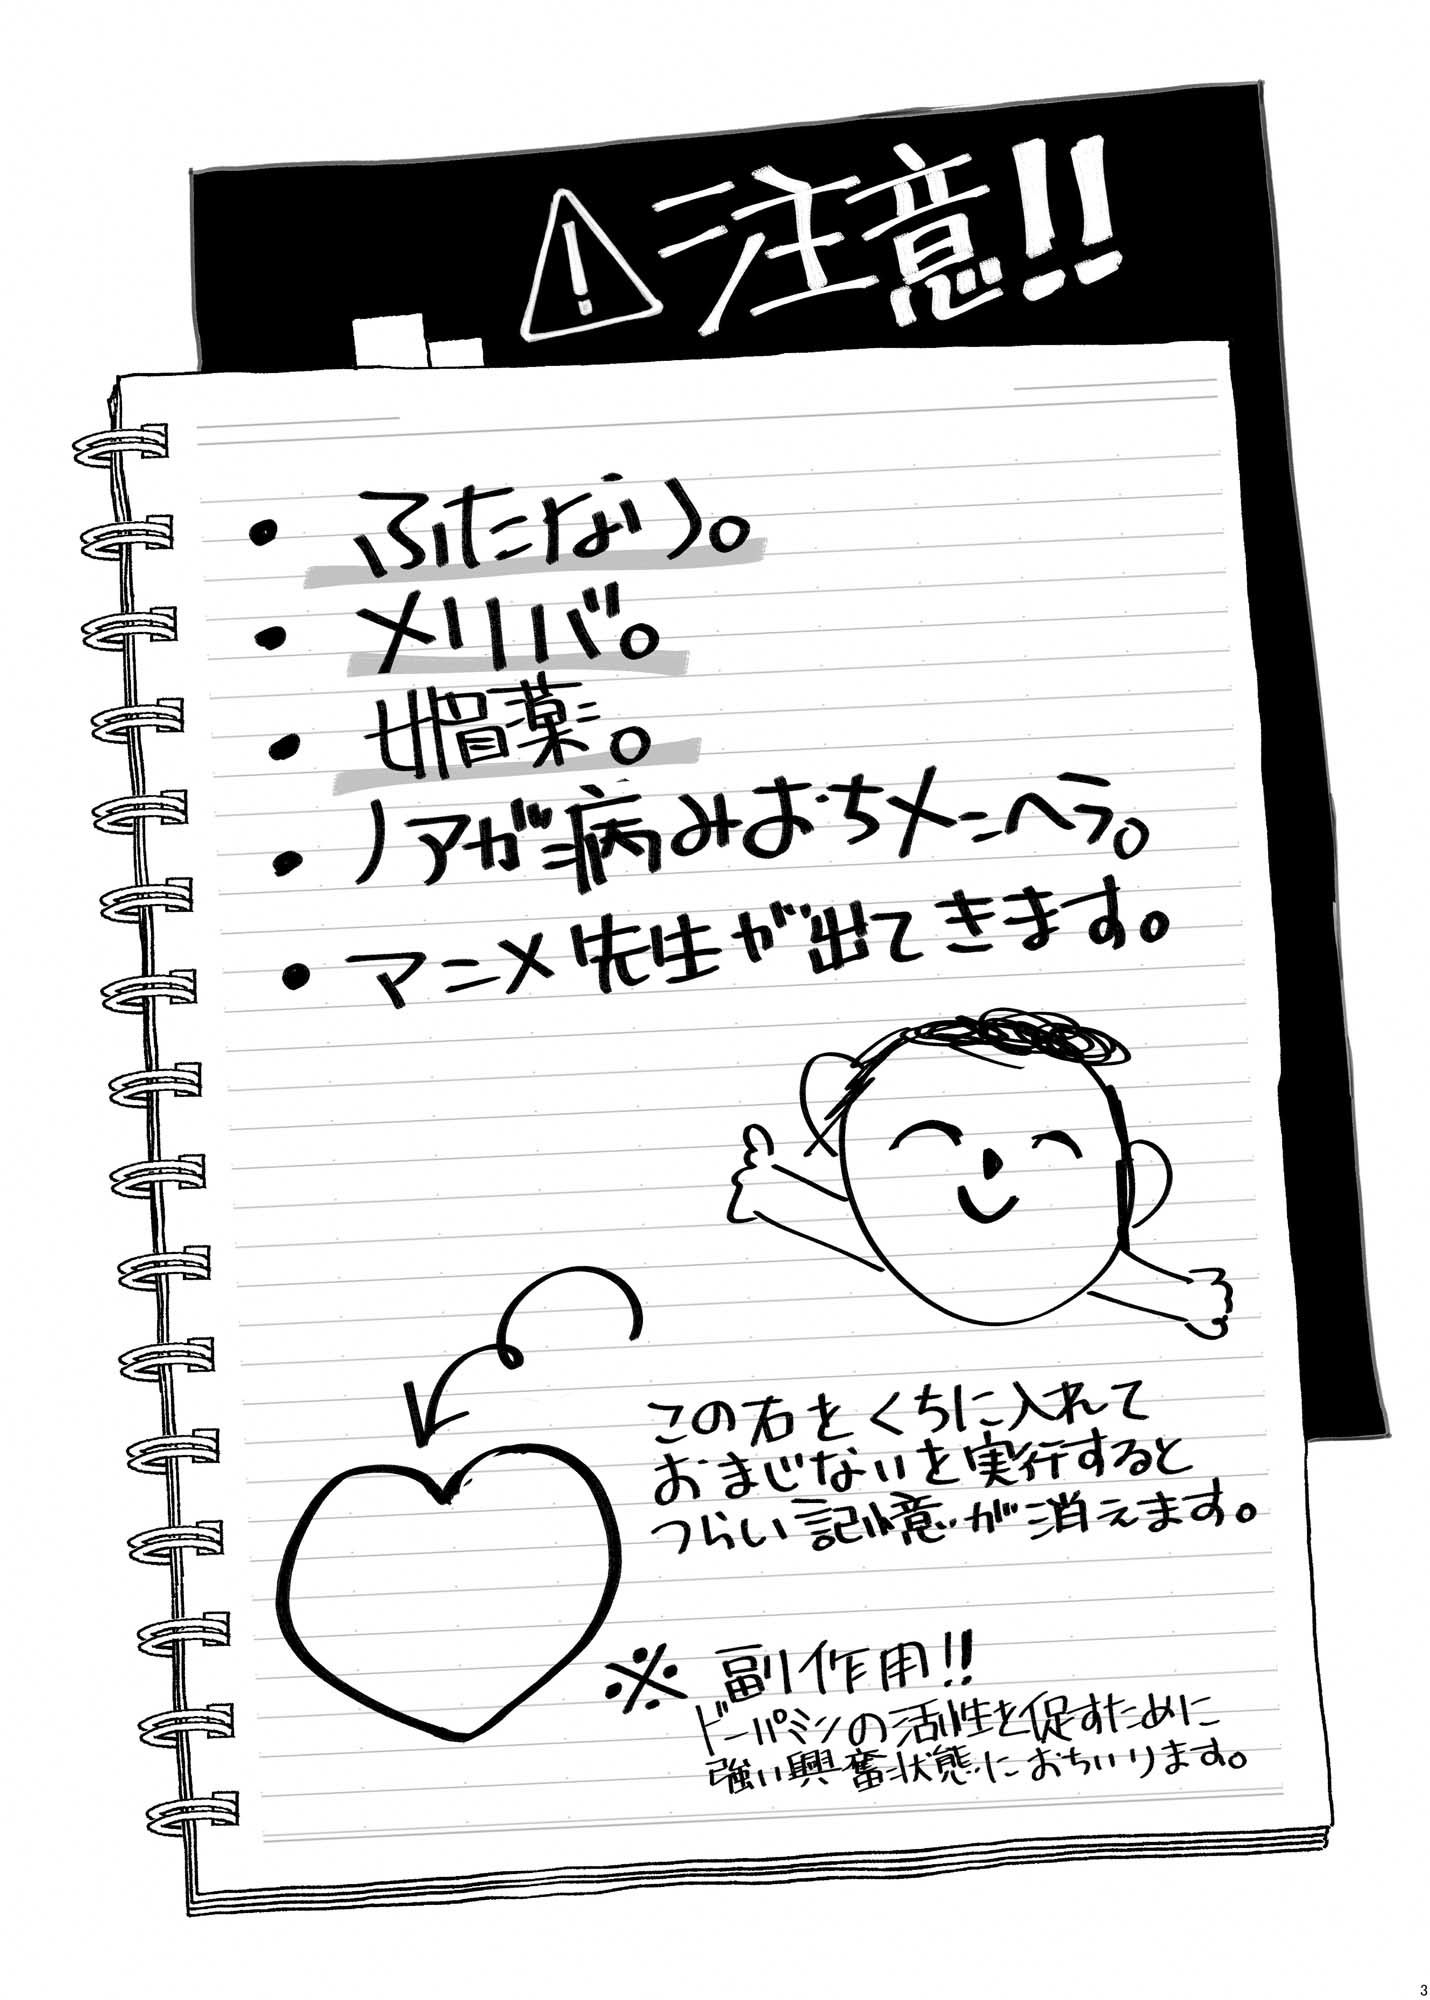 注意!!
・ふたなり。
・メリバ。
・媚薬。
・ノアが病みおちメンヘラ。
・マニメ先生が出てきます。
この石をくちに入れて
おまじないを実行すると
つらい記憶が消えます。
※ 副作用!!
ドーパミンの活性を促すために
強い興奮状態におちいります。
3